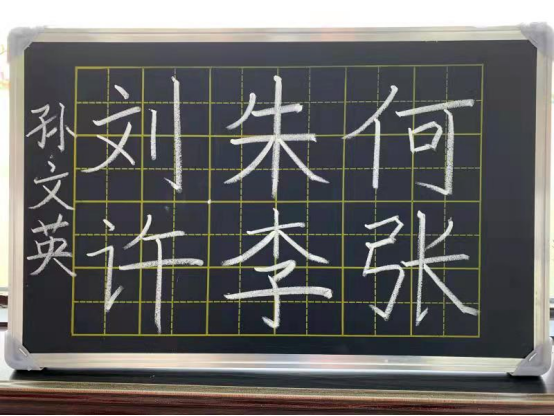 刘朱何
许李张
孙文英